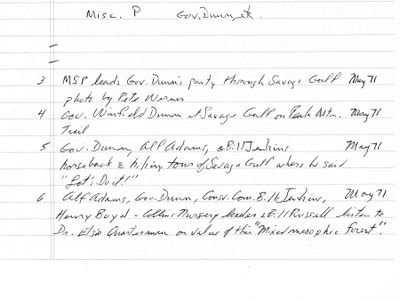 Misc. P Gov. Dunn, etc.
3 MSP leads Gov. Dunn's party through Savage Gulf May 71
photo by Pete Warner
4 Gov. Winfield Dunn at Savage Gulf on Mtn. May 71
Trail
5 Gov. Dunn, Alf Adams, & Bill Jenkins May 71
horseback & hiking tour of Savage Gulf where he said
"Let's Do it!"
6 Alf Adams, Gov. Dunn, Consv. Com. Bill Jenkins, May 71
Henry Boyd - Collins Nursery leader & Bill Russell listen to
Dr. Elsie Quarterman on value of this "Mixed mesophic forest".